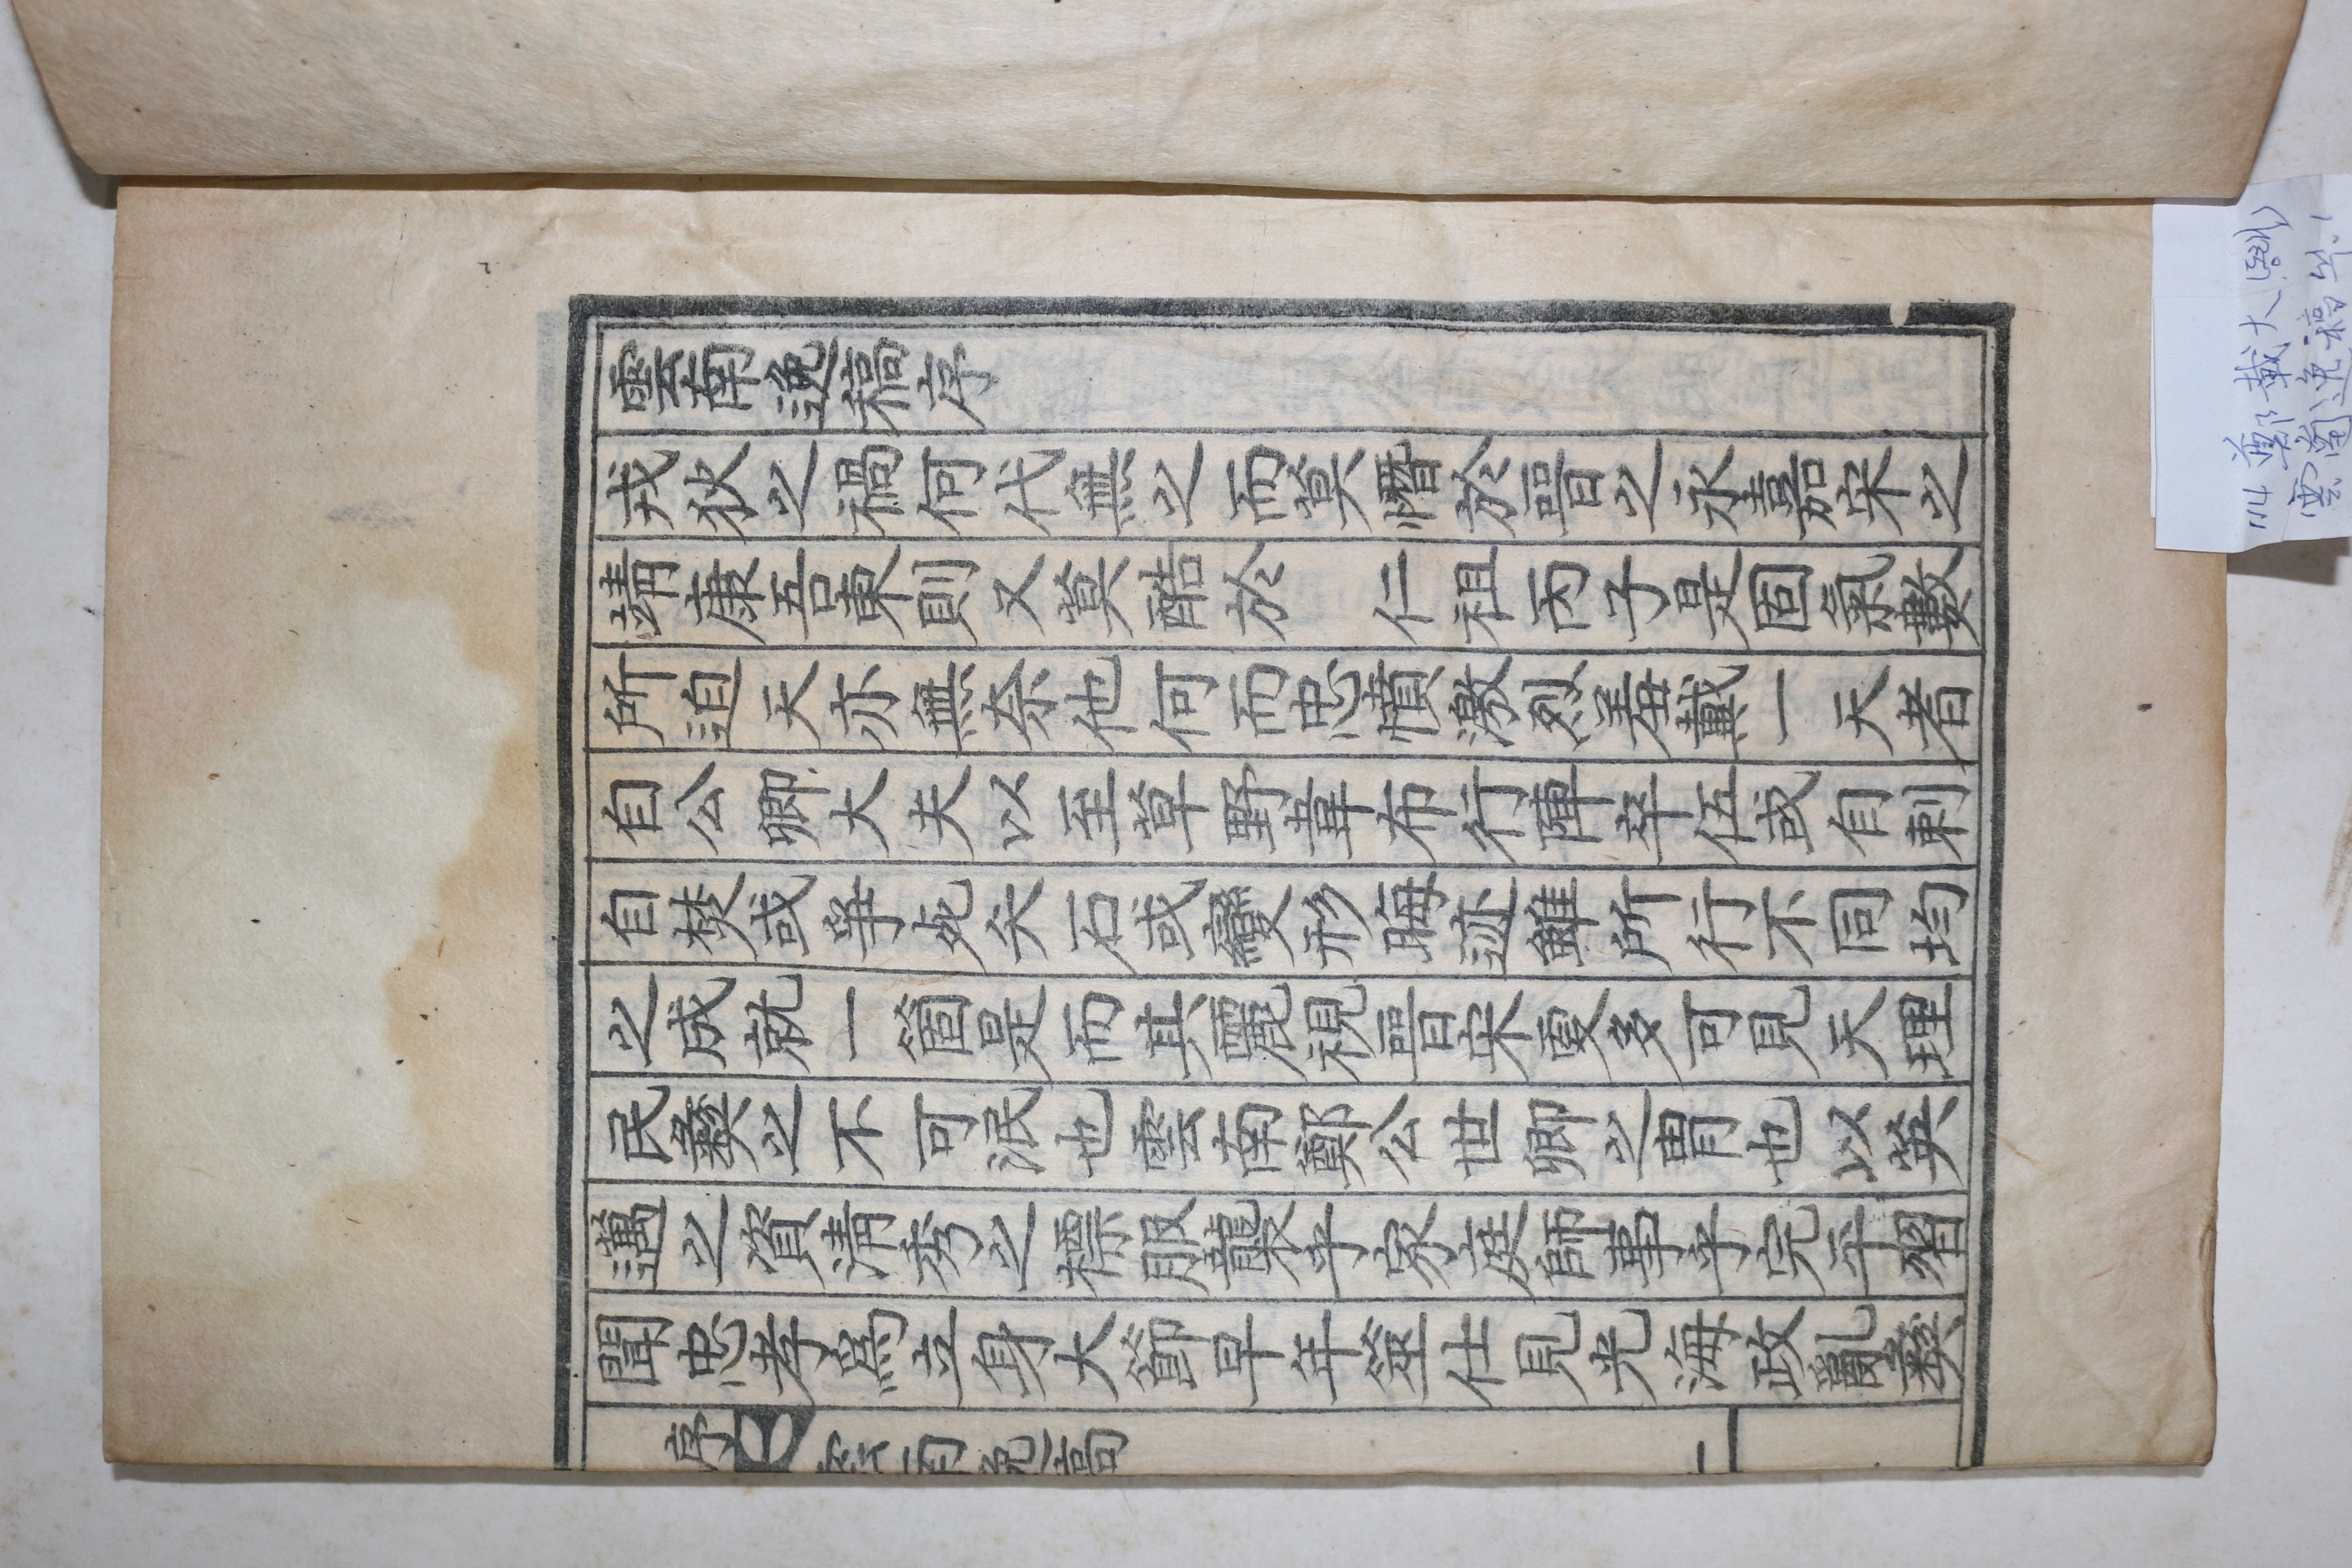 雲南逸稿序
戎狄之禍何代無之而莫憯於晉之永嘉宋之
靖康吾東則又莫酷於　仁祖丙子是固氣數
所迫天亦無奈他何而忠憤激烈羞戴一天者
自公卿大夫以至草野韋布行陣卒伍或自刺
自焚或爭死矢石或變形晦迹雖所行不同均
之成就一箇是而其麗視晉宋更多可見天理
民彝之不可泯也雲南鄭公世卿之胄也以英
邁之資淸秀之標服襲乎家庭師事乎完平習
聞忠孝爲立身大節早年筮仕見光海政亂彝
序 雲南逸稿 一
114 鄭載大(동래)
雲南逸稿